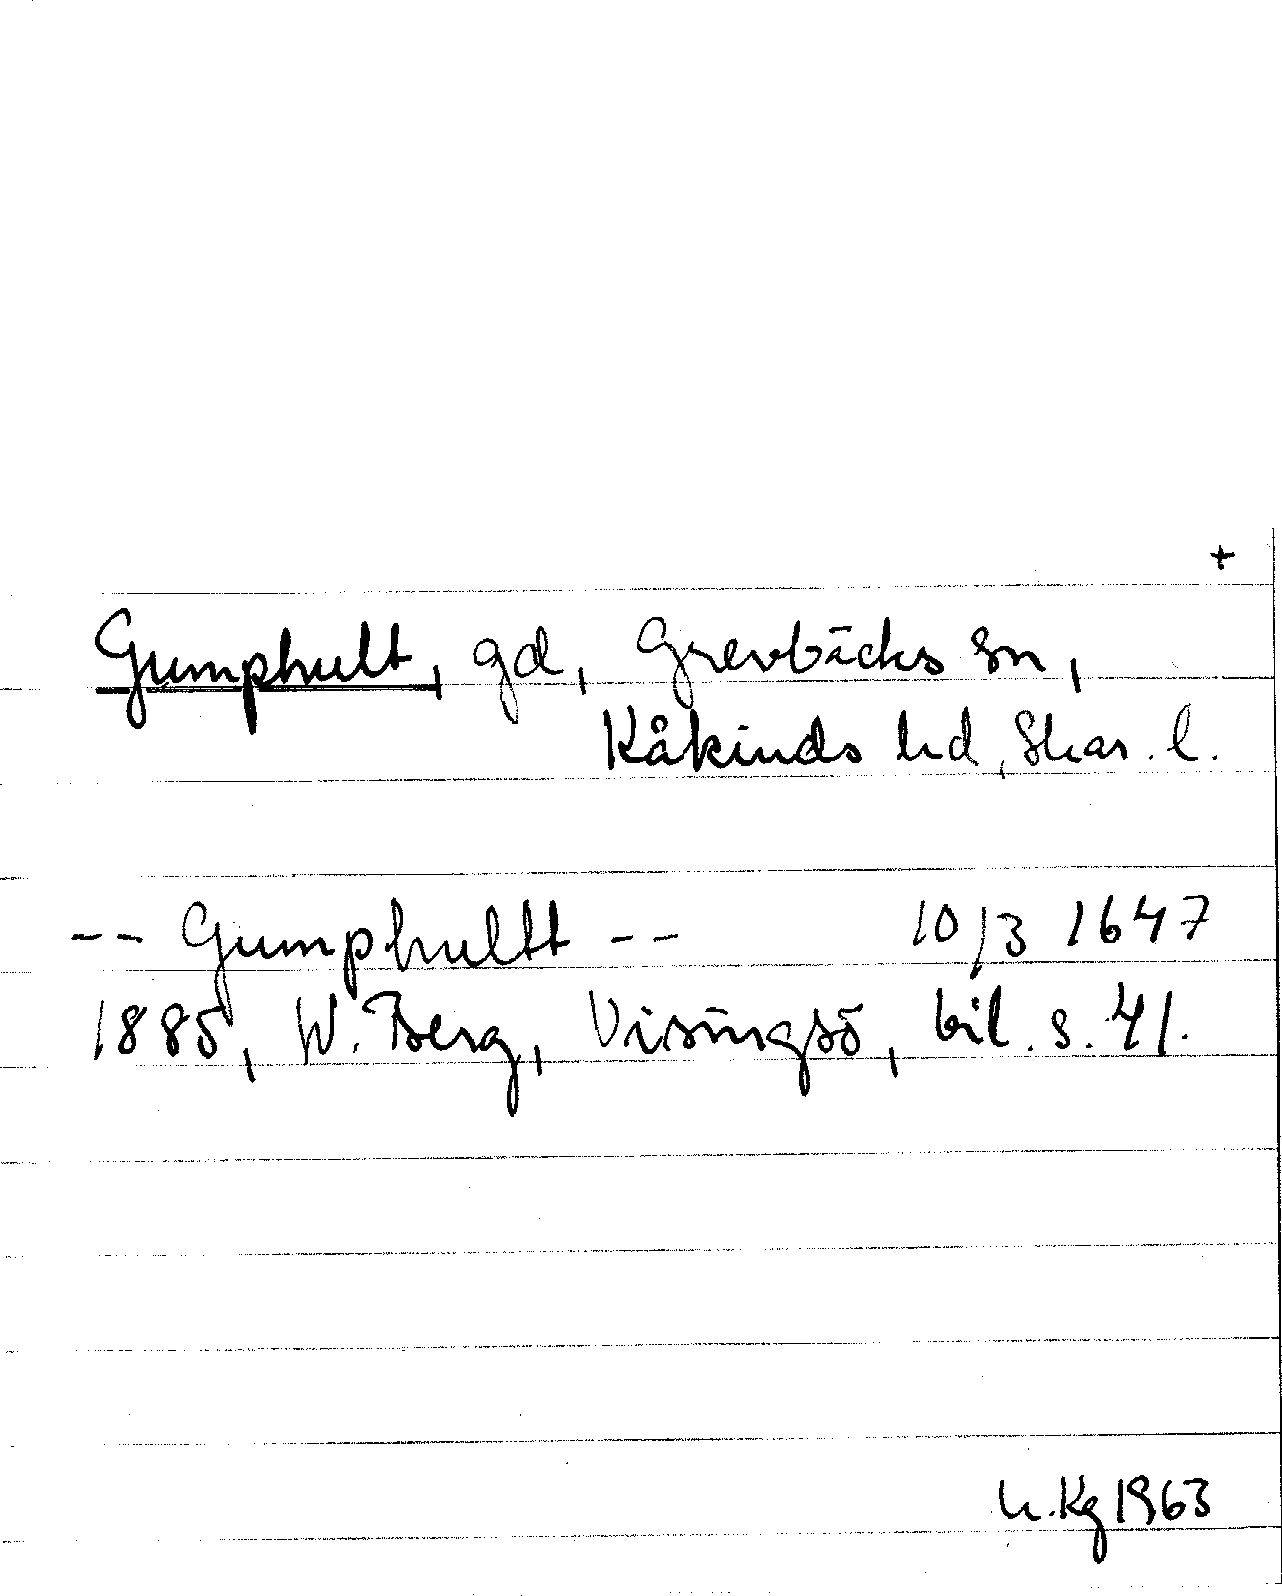 +
Gumphult, gd, Grevbäcks sn,
Kåkinds hd, Skar. l.
-- Gumphultt -- 10/3 1647
1885, W. Berg, Visingsö, bil. s. 41.
h.Kg 1963